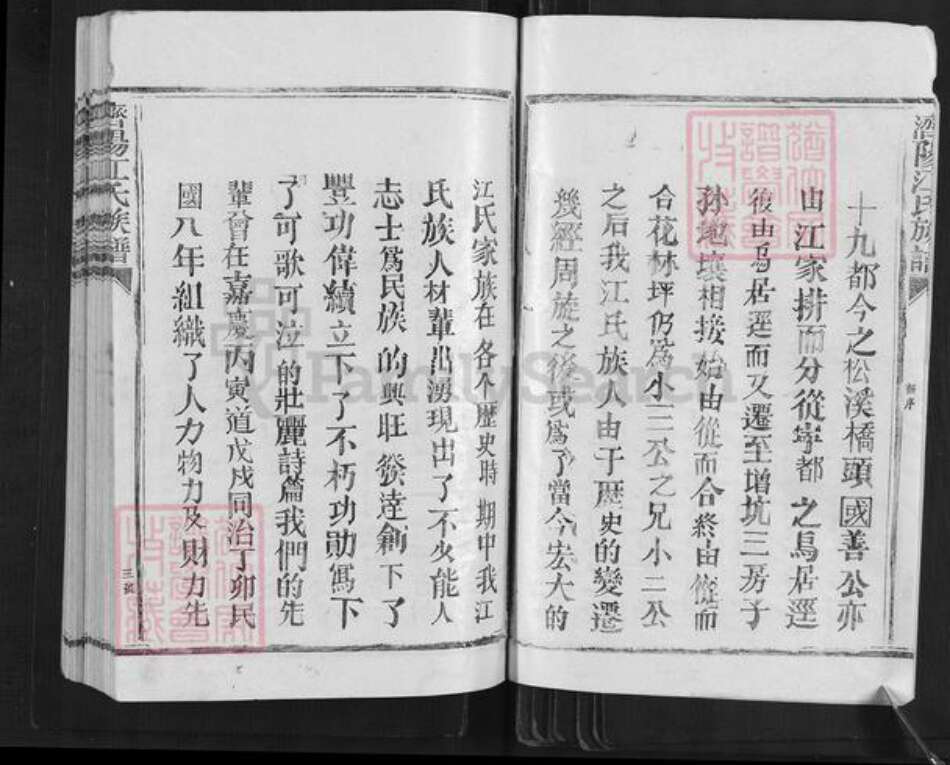 濟陽江氏族譜
新序
十九都今之松溪橋頭國善公亦
由江家排而分從寧都之烏居逕
後由烏居逕而又遷至增坑三房子
孙地壤相接始由從而合終由從而
合花林坪仍為小三公之兄小二公
之后我江氏族人由于歷史的變遷
幾經周旋之後或為了當今宏大的
江氏家族在各个歷史時期中我江
氏族人材輩出湧現出了不少能人
志士為民族的興旺發達創下了
豐功偉績立下了不朽功勋寫下
了可歌可泣的壯麗詩篇我們的先
輩曾在嘉慶丙寅道戊戌同治丁卯民
國八年組織了人力物力及财力先
濟陽江氏族譜
FamilySearch